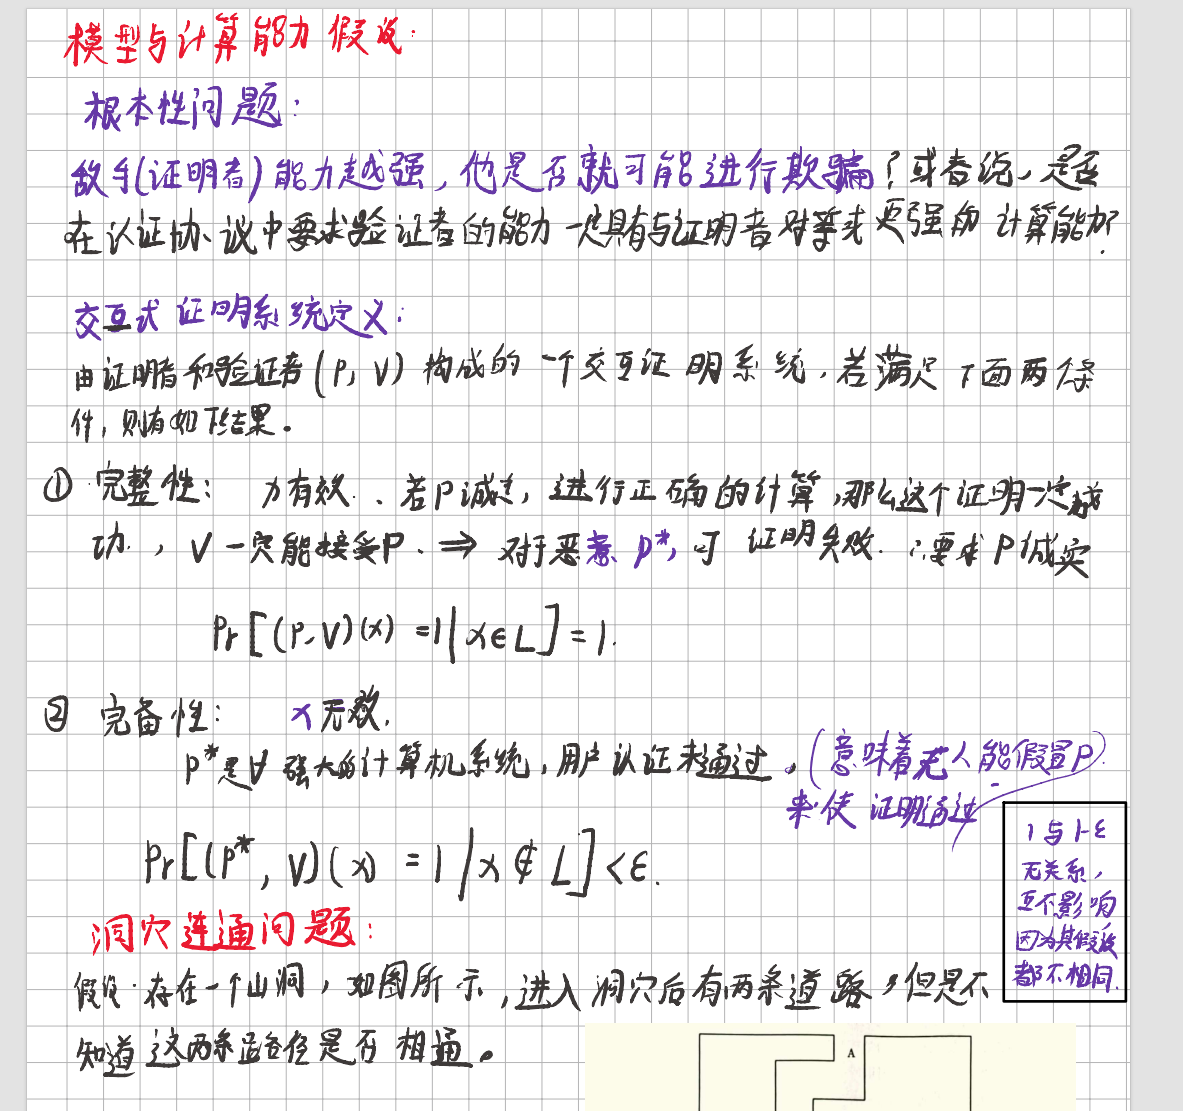 模型与计算能力假设:
根本性问题:
敌手(证明者)能力越强,他是否就可能进行欺骗?或者说,是否
在认证协议中要求验证者的能力一定具有与证明者对等或更强的计算能力?
交互式证明系统定义:
由证明者和验证者(P, V)构成的一个交互证明系统,若满足下面两个条
件,则有如下结果。
① 完整性: 有效、若P诚实,进行正确的计算,那么这个证明一定成
功,V一定能接受P. ⇒ 对于恶意P*,可证明失败.∴要求P诚实
Pr[(P,V)(x) =1|x∈L]=1.
② 完备性: x无效.
P*是∀强大的计算机系统,用户认证未通过。(意味着无人能假冒P)
来使证明通过
Pr[(P*,V)(x) = 1|x∉L]<ε.
1与1-ε
无关系,
互不影响
因为其假设
都不相同.
洞穴连通问题:
假设存在一个山洞,如图所示,进入洞穴后有两条道路,但是不
知道这两条路径是否相通。
A